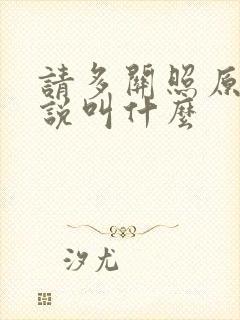 請多關照原
說叫什麼
汐尤